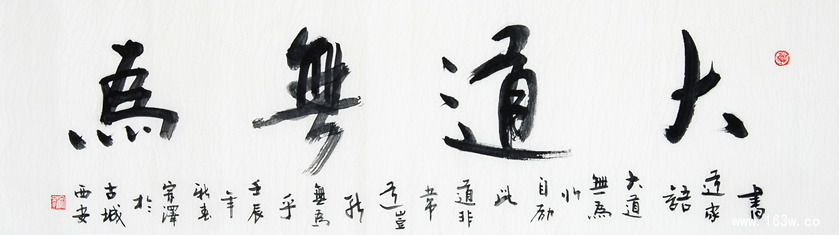 大道無為
書
道家
語
大道
無為
自励
此
道非
常
道豈
能
無為
乎
壬辰
年
於
古城
西安
www.163w.co